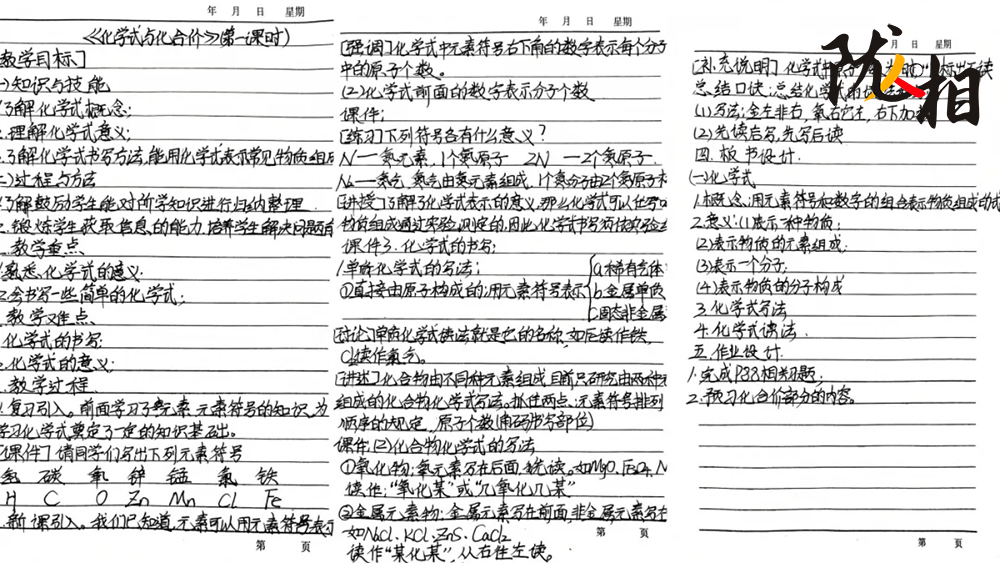 年 月 日 星期
《化学式与化合价》(第一课时)
教学目标]
一)知识与技能
了解化学式概念;
理解化学式意义;
了解化学式书写方法,能用化学式表示常见物质组成
二)过程与方法
了解鼓励学生能对所学知识进行归纳整理
锻炼学生获取信息的能力,培养学生解决问题
教学重点
熟悉化学式的意义
2.会书写一些简单的化学式;
教学难点
化学式的书写;
化学式的意义;
教学过程
复习引入。前面学习了元素,元素符号的知识,为
学习化学式奠定了一定的知识基础。
[课件]请同学们写出下列元素符号
氢 碳 氧 锌 锰 氯 铁
H C O Zn Mn Cl Fe
新课引入。我们已知道,元素可以用元素符号表示
第 页
年 月 日 星期
[强调]化学式中元素符号右下角的数字表示每个分子
中的原子个数。
(2)化学式前面的数字表示分子个数
课件;
[练习]下列符号各有什么意义?
N—氮元素,1个氮原子 2N —2个氮原子.
N₂—氮气,氮气由氮元素组成,1个氮分子由2个氮原子
[讲授]了解了化学式表示的意义,那么化学式可以任写
物质组成通过实验测定的,因此,化学式书写须依实验
课件3.化学式的书写;
1.单质化学式的写法;
①直接由原子构成的:用元素符号表示
a.稀有气体
b.金属单质
c.固态非金属
[讨论]单质化学式读法就是它的名称,如Fe读作铁,
Cl₂读作氯气。
[讲述]化合物由不同种元素组成,目前只研究由两种元
组成的化合物化学式写法,抓住两点:元素符号排列
顺序的规定,原子个数(角码书写部位)
课件:(2)化合物化学式的写法
①氧化物:氧元素写在后面,先读。如MgO、
读作:“氧化某”或“几氧化几某”
②金属元素物:金属元素写在前面,非金属元素写在
如NaCl、KCl、ZnS、CaCl₂
读作“某化某”,从右往左读。
第 页
月 日 星期
陇人相
[补充说明]化学式中
总结口诀:总结化学式
(1)写法:金左非右,氧右它左,右下
(2)先读后写,先写后读
四.板书设计.
(一)化学式
1.概念:用元素符号和数字的组合表示物质组成的式
2.意义:(1)表示一种物质;
(2)表示物质的元素组成;
(3)表示一个分子;
(4)表示物质的分子构成
3.化学式写法
4.化学式读法.
五.作业设计.
1.完成P88相关习题.
2.预习化合价部分的内容。
第 页